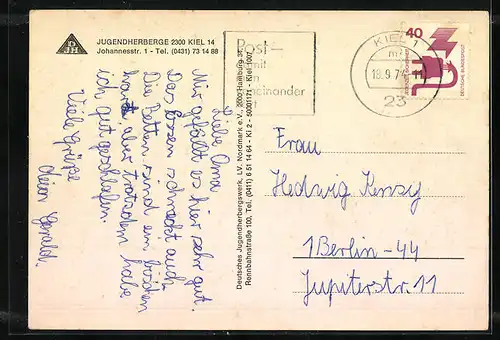 JUGENDHERBERGE 2300 KIEL 14
Johannesstr. 1 - Tel. (0431) 73 14 88
Liebe Oma!
Mir gefällt es hier sehr gut.
Das Essen schmeckt auch.
Die Betten sind ein bißchen
hart, aber trotzdem habe
ich gut geschlafen.
Viele Grüße
dein Gerald.
Deutsches Jugendherbergswerk, LV. Nordmark e.V., 2000 Hamburg
Rennbahnstraße 100, Tel. (0411) 6 51 14 64 - Ki 2 - 50001171 - Kiel 1007
Post-
mit
einander
KIEL 1
18.9.74-11
23
40
DEUTSCHE BUNDESPOST
Frau
Hedwig
1 Berlin-44
Jupiterstr. 11